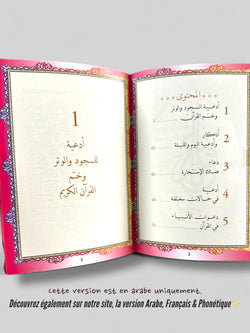 المحتوى
1 أدعية للسجود والوتر
وختم القرآن
2 أذكار
وأدعية اليوم والليلة
3 دعاء
صلاة الإستخارة
4 أدعية
في حالات مختلفة
5 دعوات الأنبياء
في القرآن
2
1
أدعية
للسجود والوتر
وختم
القرآن الكريم
3
Cette version est en arabe uniquement.
Découvrez également sur notre site, la version Arabe, Français & Phonétique